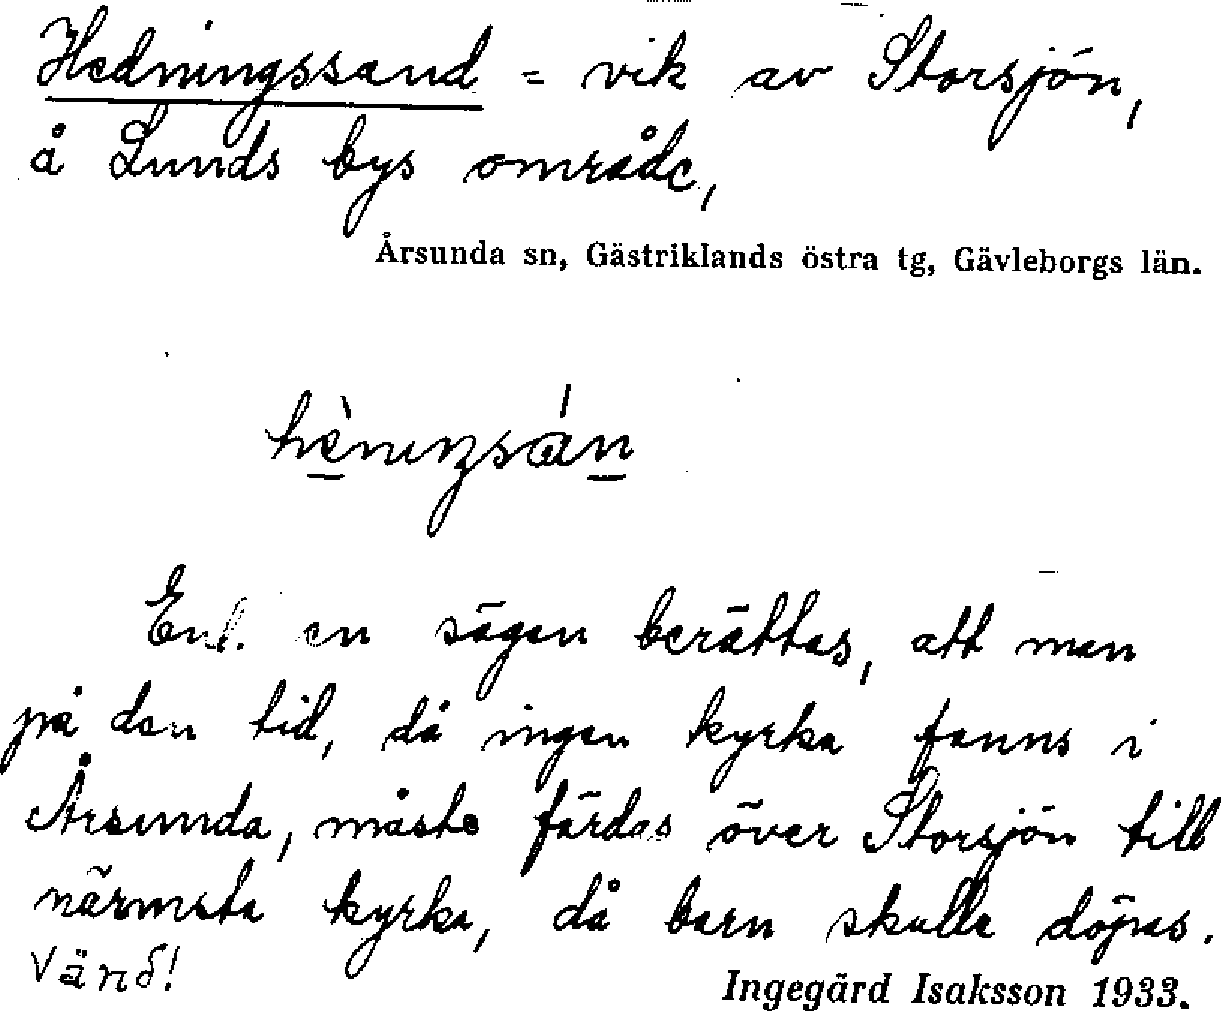 Hedningssand = vik av Storsjön,
å Lunds bys område,
Årsunda sn, Gästriklands östra tg, Gävleborgs län.
Enl. en sägen berättas, att man
på den tid, då ingen kyrka fanns i
Årsunda, måste färdas över Storsjön till
närmsta kyrka, då barn skulle döpas.
Vänd!
Ingegärd Isaksson 1933.